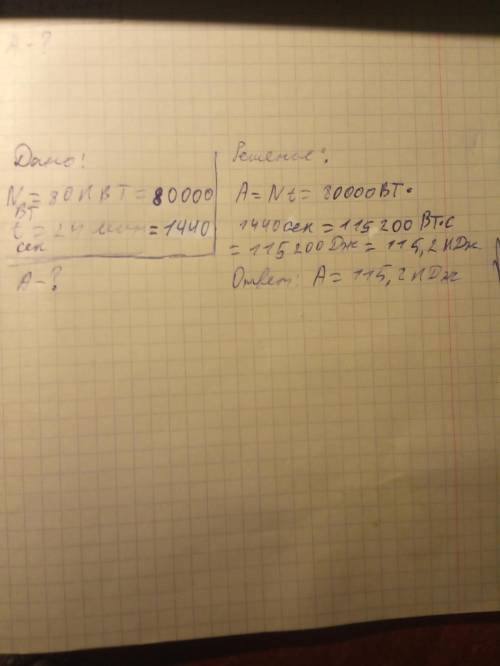 A - ?
Дано:
N = 80 кВТ = 80000
ВТ
t = 24 мин = 1440
сек
A - ?
Решение:
A = Nt = 80000 ВТ·
1440 сек = 115 200 ВТ·с
= 115 200 Дж = 115,2 кДж
Ответ: A = 115,2 кДж